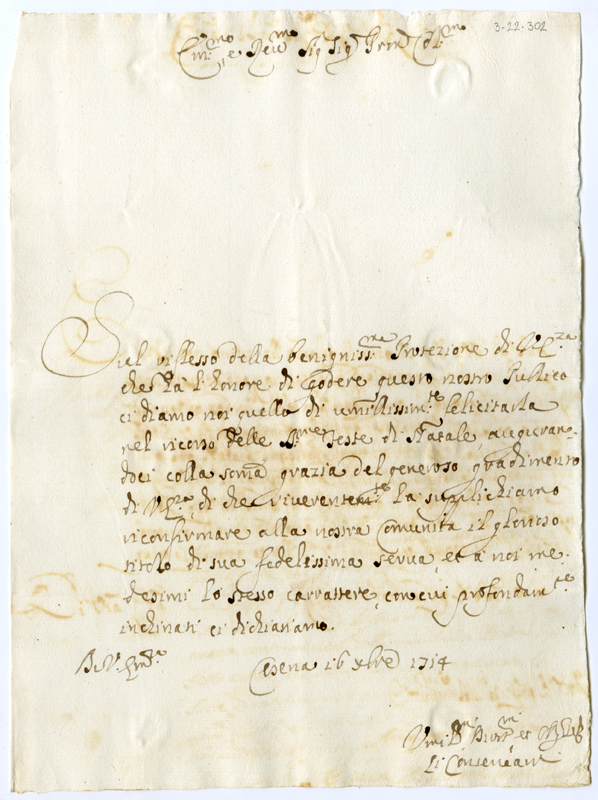 3-22-302
Em.mo e Rev.mo Sig Sig Pron Col.mo
Sul riflesso della benigniss.ma Protezione di V.E.za
che hà l'honore di godere questo nostro Publico
ci diamo noi quello di umilissim.te felicitarla
nel vicino delle S.me Feste di Natale, auguran-
doci colla soma grazia del generoso gradimento
di V.E.a, di che riverentem.te la suplichiamo
riconfirmare alla nostra Comunità il glorioso
titolo di sua fedelissima serva, et à noi me-
desimi lo stesso carrattere, con cui profondam.te
inchinati ci dichiariamo.
Di V. Em.a
Cesena 16 xbre 1714
Umi D.mi Devot.mi et
Li Conservatori